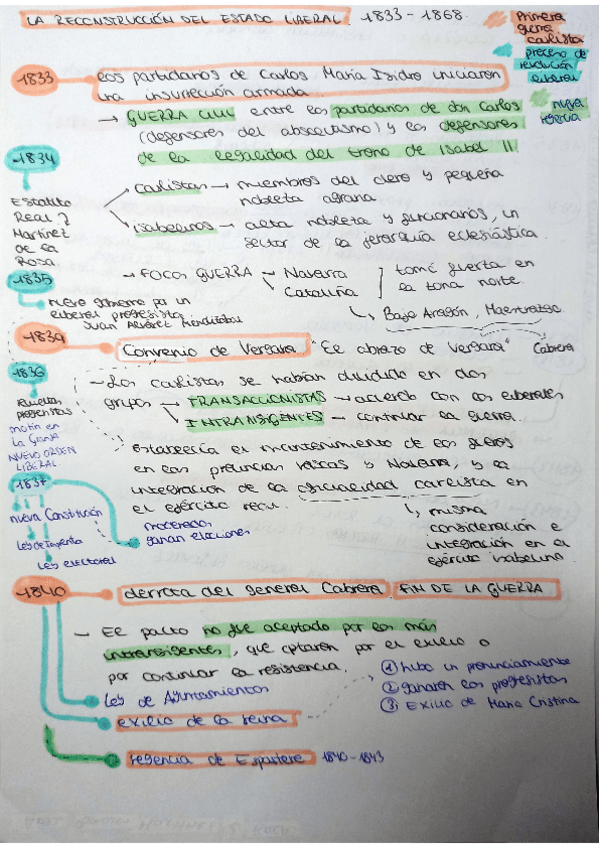 LA RECONSTRUCCIÓN DEL ESTADO LIBERAL 1833 - 1868
Primera
guerra
carlista
proceso de
revolución
liberal
nueva
regencia
1833
Los partidarios de Carlos María Isidro iniciaron
una insurrección armada.
→ GUERRA CIVIL entre los partidarios de don Carlos
(defensores del absolutismo) y los defensores
de la legalidad del trono de Isabel II
1834
Estatuto
Real
Martínez
de la
Rosa
→ carlistas → miembros del clero y pequeña
nobleza agraria
→ isabelinos → alta nobleza y funcionarios, un
sector de la jerarquía eclesiástica.
→ FOCOS GUERRA - Navarra
Cataluña
tomó fuerza en
la zona norte.
↳ Bajo Aragón, Maestrazgo
Cabrera
1835
nuevo gobierno por un
liberal progresista
Juan Álvarez Mendizábal
1839
Convenio de Vergara "El abrazo de Vergara"
- Los carlistas se habían dividido en dos
grupos → TRANSACCIONISTAS → acuerdo con los liberales
→ INTRANSIGENTES - continuar la guerra.
establecía el mantenimiento de los fueros
en las provincias vascas y Navarra, y la
integración de la oficialidad carlista en
el ejército real.
↳ misma
consideración e
integración en el
ejército isabelino
1836
Revueltas
progresistas
motín en
La Granja
NUEVO ORDEN
LIBERAL
1837
nueva Constitución
Ley de Imprenta
Ley electoral
moderados
ganan elecciones
1840
derrota del general Cabrera FIN DE LA GUERRA
- El pacto no fue aceptado por los más
intransigentes, que optaron por el exilio o
por continuar la resistencia.
Ley de Ayuntamientos
exilio de la reina
① hubo un pronunciamiento
② ganaron los progresistas
③ Exilio de María Cristina
regencia de Espartero 1840-1843